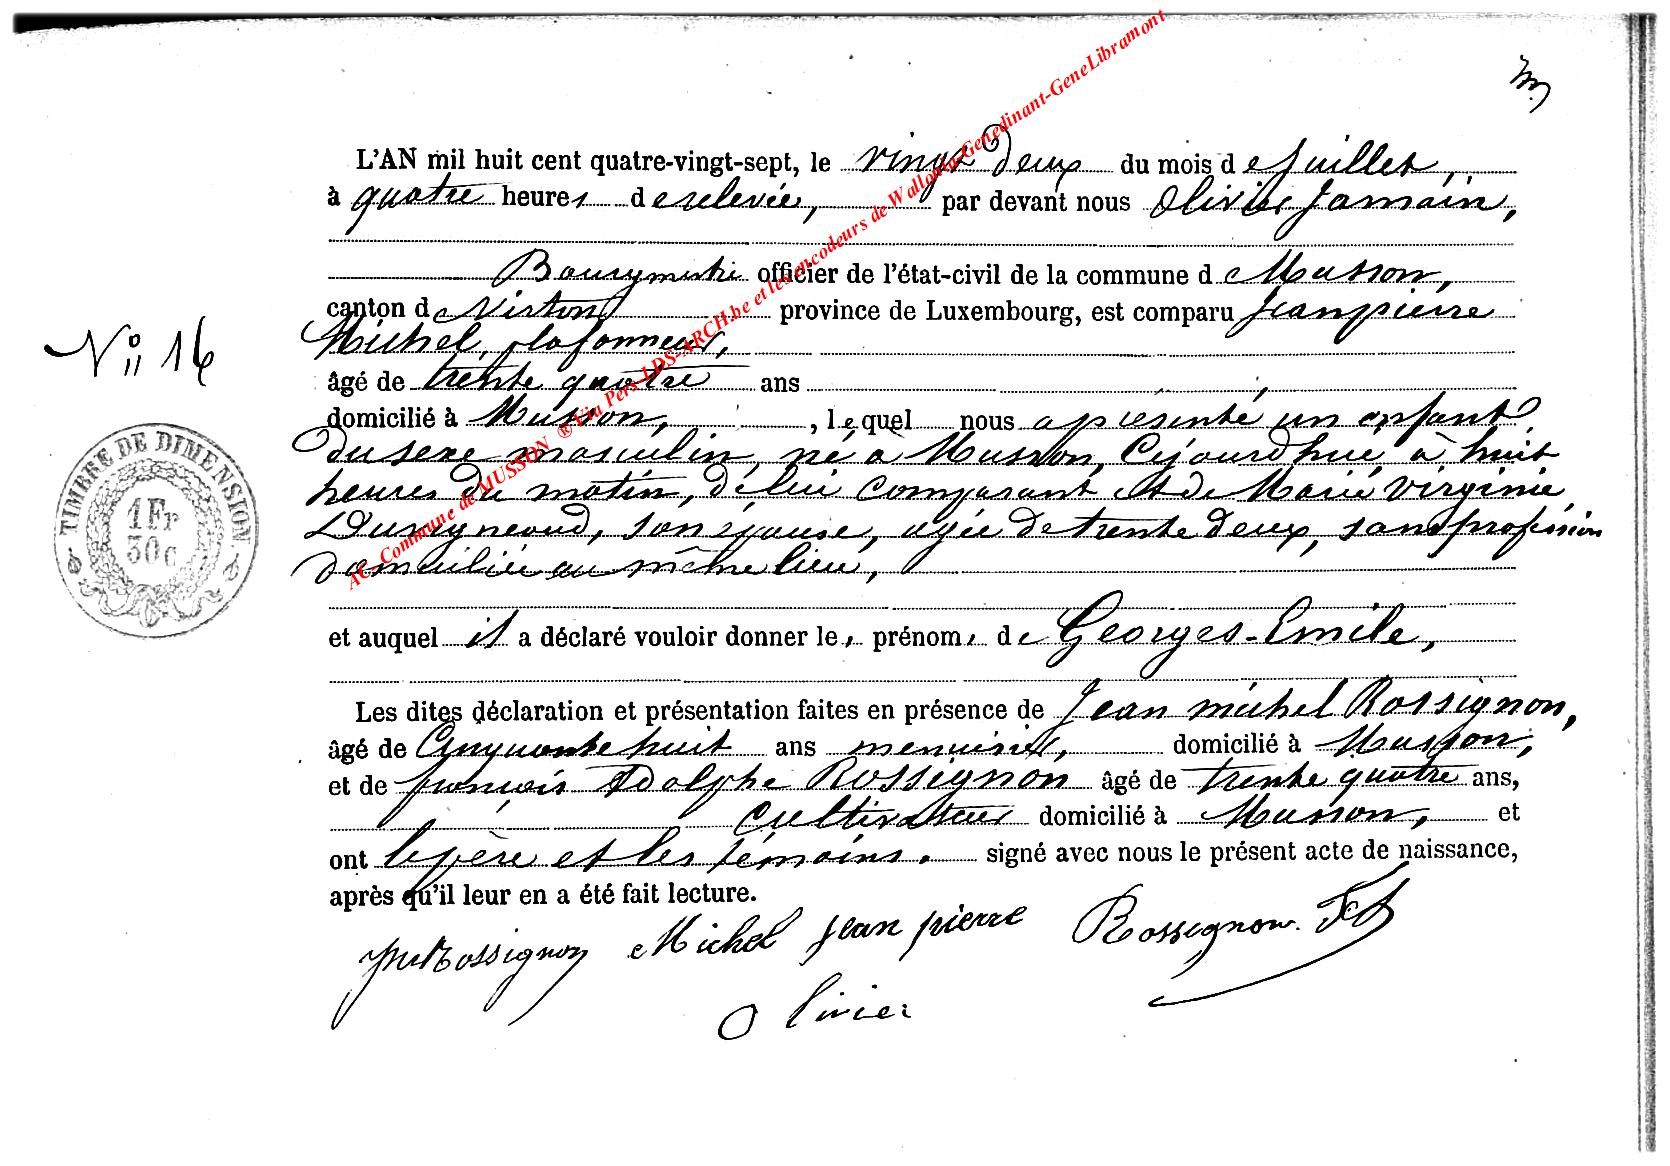 L'AN mil huit cent quatre-vingt-sept, le vingt deux du mois de Juillet,
à quatre heures de relevée, par devant nous Olivier Jamain,
Bourgmestre officier de l'état-civil de la commune de Musson,
canton de Virton province de Luxembourg, est comparu Jeanpierre
N° 16
Michel, plafonneur,
âgé de trente quatre ans
domicilié à Musson, , lequel nous a présenté un enfant
du sexe masculin, né à Musson, Cejourd'hui à huit
heures du matin, de lui comparant et de Marie Virginie
Duvigneaud, son épouse, agée de trente deux, sans profession
domiciliée au même lieu,
TIMBRE DE DIMENSION
1 Fr
30 C
et auquel il a déclaré vouloir donner les prénoms de Georges-Emile,
Les dites déclaration et présentation faites en présence de Jean michel Rossignon,
âgé de Cinquante huit ans menuisier, domicilié à Musson,
et de françois Adolphe Rossignon âgé de trente quatre ans,
Cultivateur domicilié à Musson, et
ont le père et les témoins. signé avec nous le présent acte de naissance,
après qu'il leur en a été fait lecture.
JM Rossignon Michel Jean pierre Rossignon.
Olivier
AC- Commune de MUSSON ® Via Pers-LDS-ARCH.be et les encodeurs de Wallonia-Genedinant-GeneLibramont